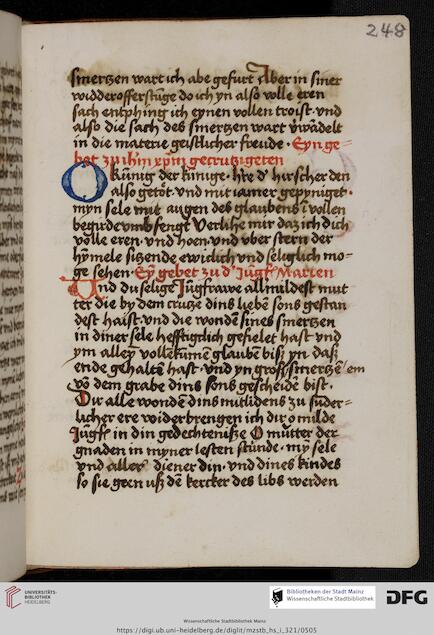 248
smertzen wart ich abe gefurt Aber in siner
widderofferstūge do ich yn also volle eren
sach entphing ich eynen vollen troist vnd
also die sach des smertzen wart v̄wādelt
in die materie geistlicher freude · Eyn ge-
bet zu ihm xp̄m gecrutzigeten
O Kūnig der kūnige · hre d' hirscher den
also getöt vnd mit iamer gepyniget ·
myn sele mit augen des glaubens ī vollen
begirde vmbfengt Verlihe mir daz ich dich
volle eren · vnd hoen vnd vber stern der
hymele sitzende ewiclich vnd seliglich mo-
ge sehen Ey gebet zu d' Jūgf' Marien
Vnd du selige Jūgfrawe allmildest mut
ter die by dem crutze dins lieben sons gestan
dest haist · vnd die wonden sines smertzen
in diner sele hefftiglich gefielet hast vnd
ym alleȳ vollekumē glaubē biſz yn daſ
ende gehaltē hast · vnd yn groſſ smertzē em
vō dem grabe dins sons gescheidē bist ·
Dir alle wondē dins mitlidens zu sūder-
licher ere widerbrengen ich dir o milde
Jūgf' in din gedechteniſze O mūtter der
gnaden in myner lesten stunde · my sele
vnd aller diener din · vnd dines kindes
so sie geen uſz dē kercker des libs werden
UNIVERSITÄTS-
BIBLIOTHEK
HEIDELBERG
Bibliotheken der Stadt Mainz
Wissenschaftliche Stadtbibliothek
DFG
Wissenschaftliche Stadtbibliothek Mainz
https://digi.ub.uni-heidelberg.de/diglit/mzstb_hs_i_321/0505